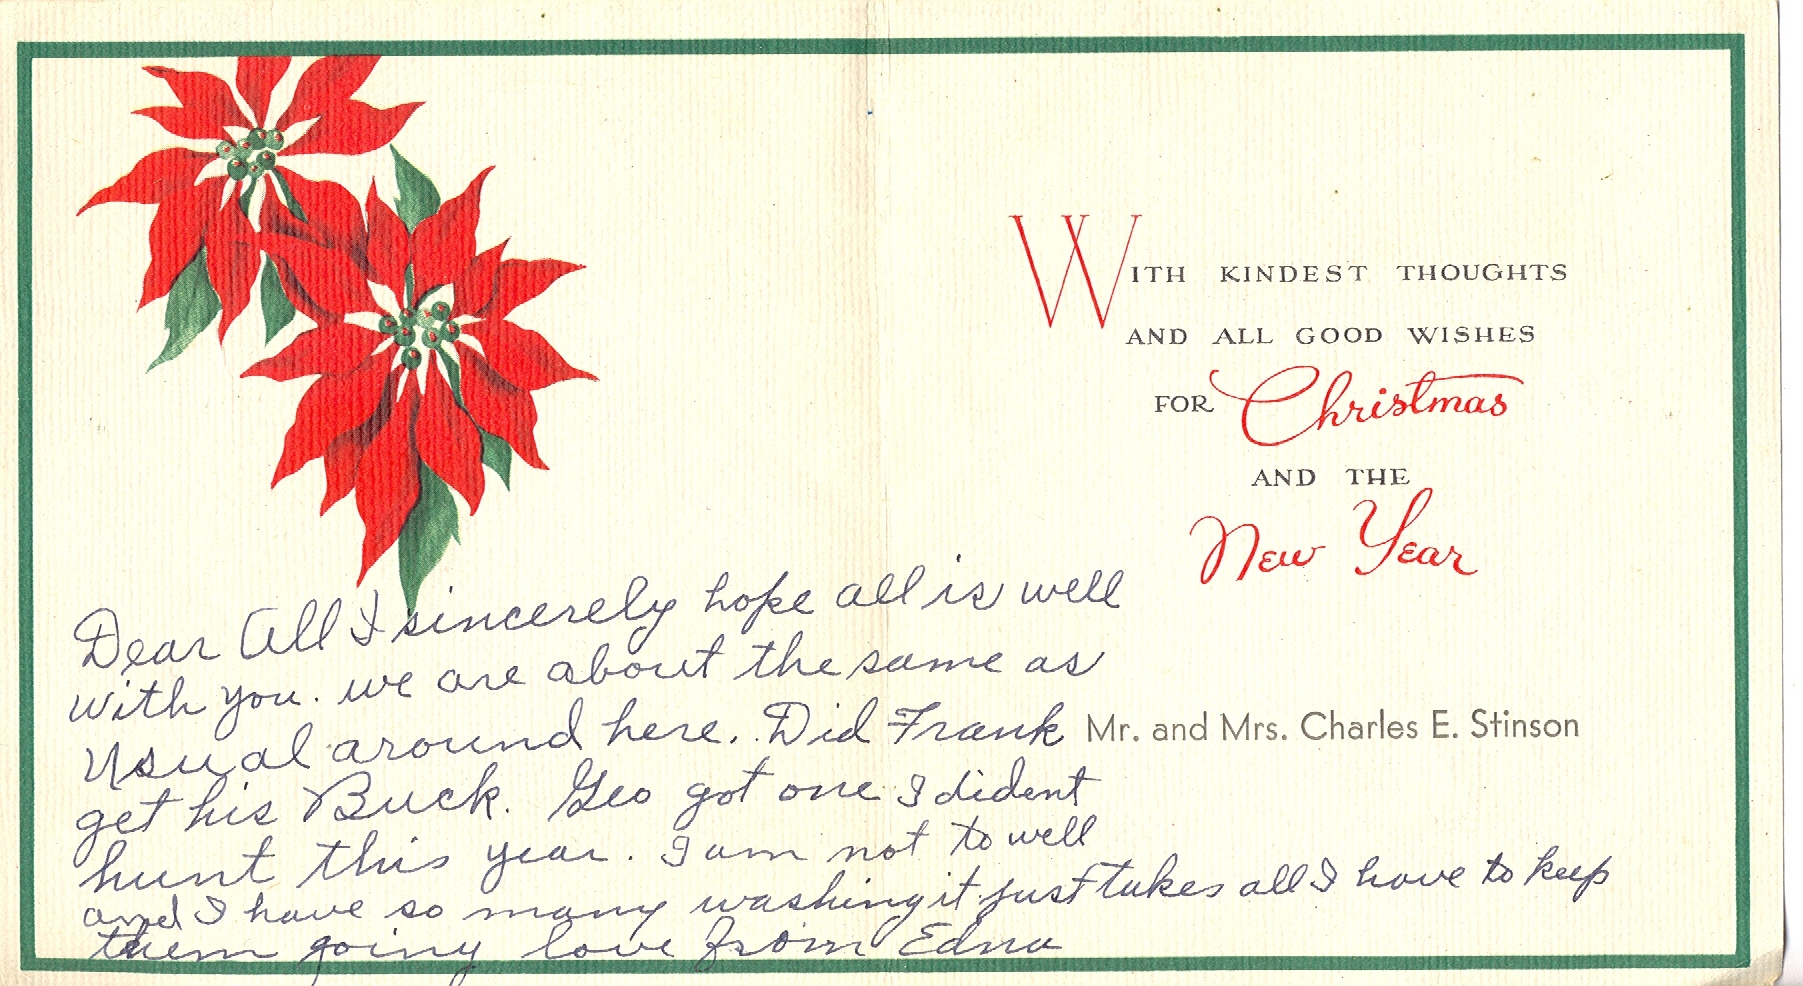 WITH KINDEST THOUGHTS
AND ALL GOOD WISHES
FOR Christmas
AND THE
New Year
Mr. and Mrs. Charles E. Stinson
Dear All I sincerely hope all is well
with you. we are about the same as
usual around here. Did Frank
get his Buck. Geo got one I dident
hunt this year. I am not to well
and I have so many washing it just takes all I have to keep
them going love from Edna